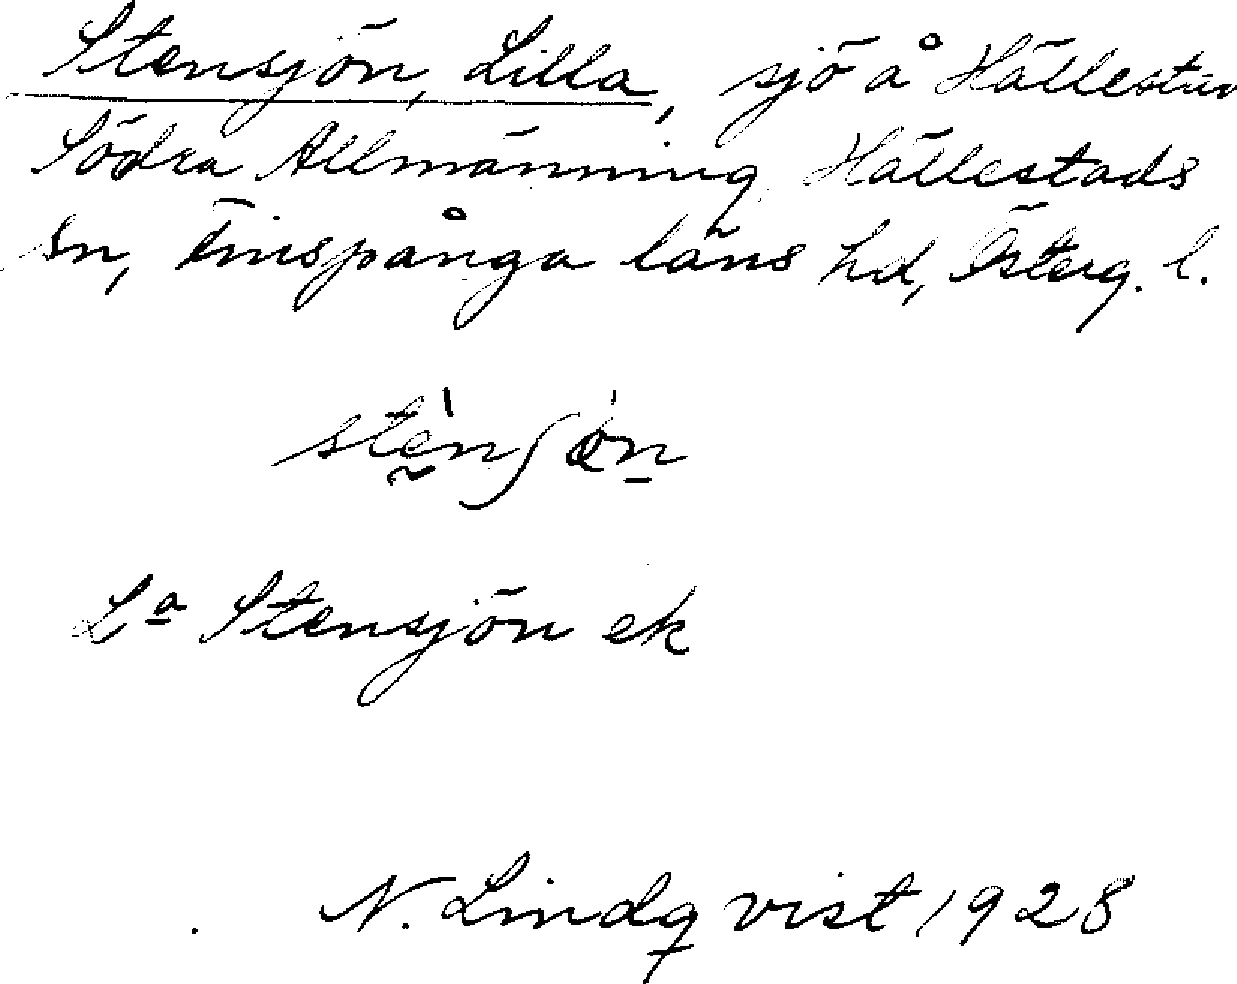 Stensjön, Lilla, sjö å Hällestads
Södra Allmänning, Hällestads
sn, Finspånga läns hd, Österg. l.
Lª Stensjön ek
N. Lindqvist 1928